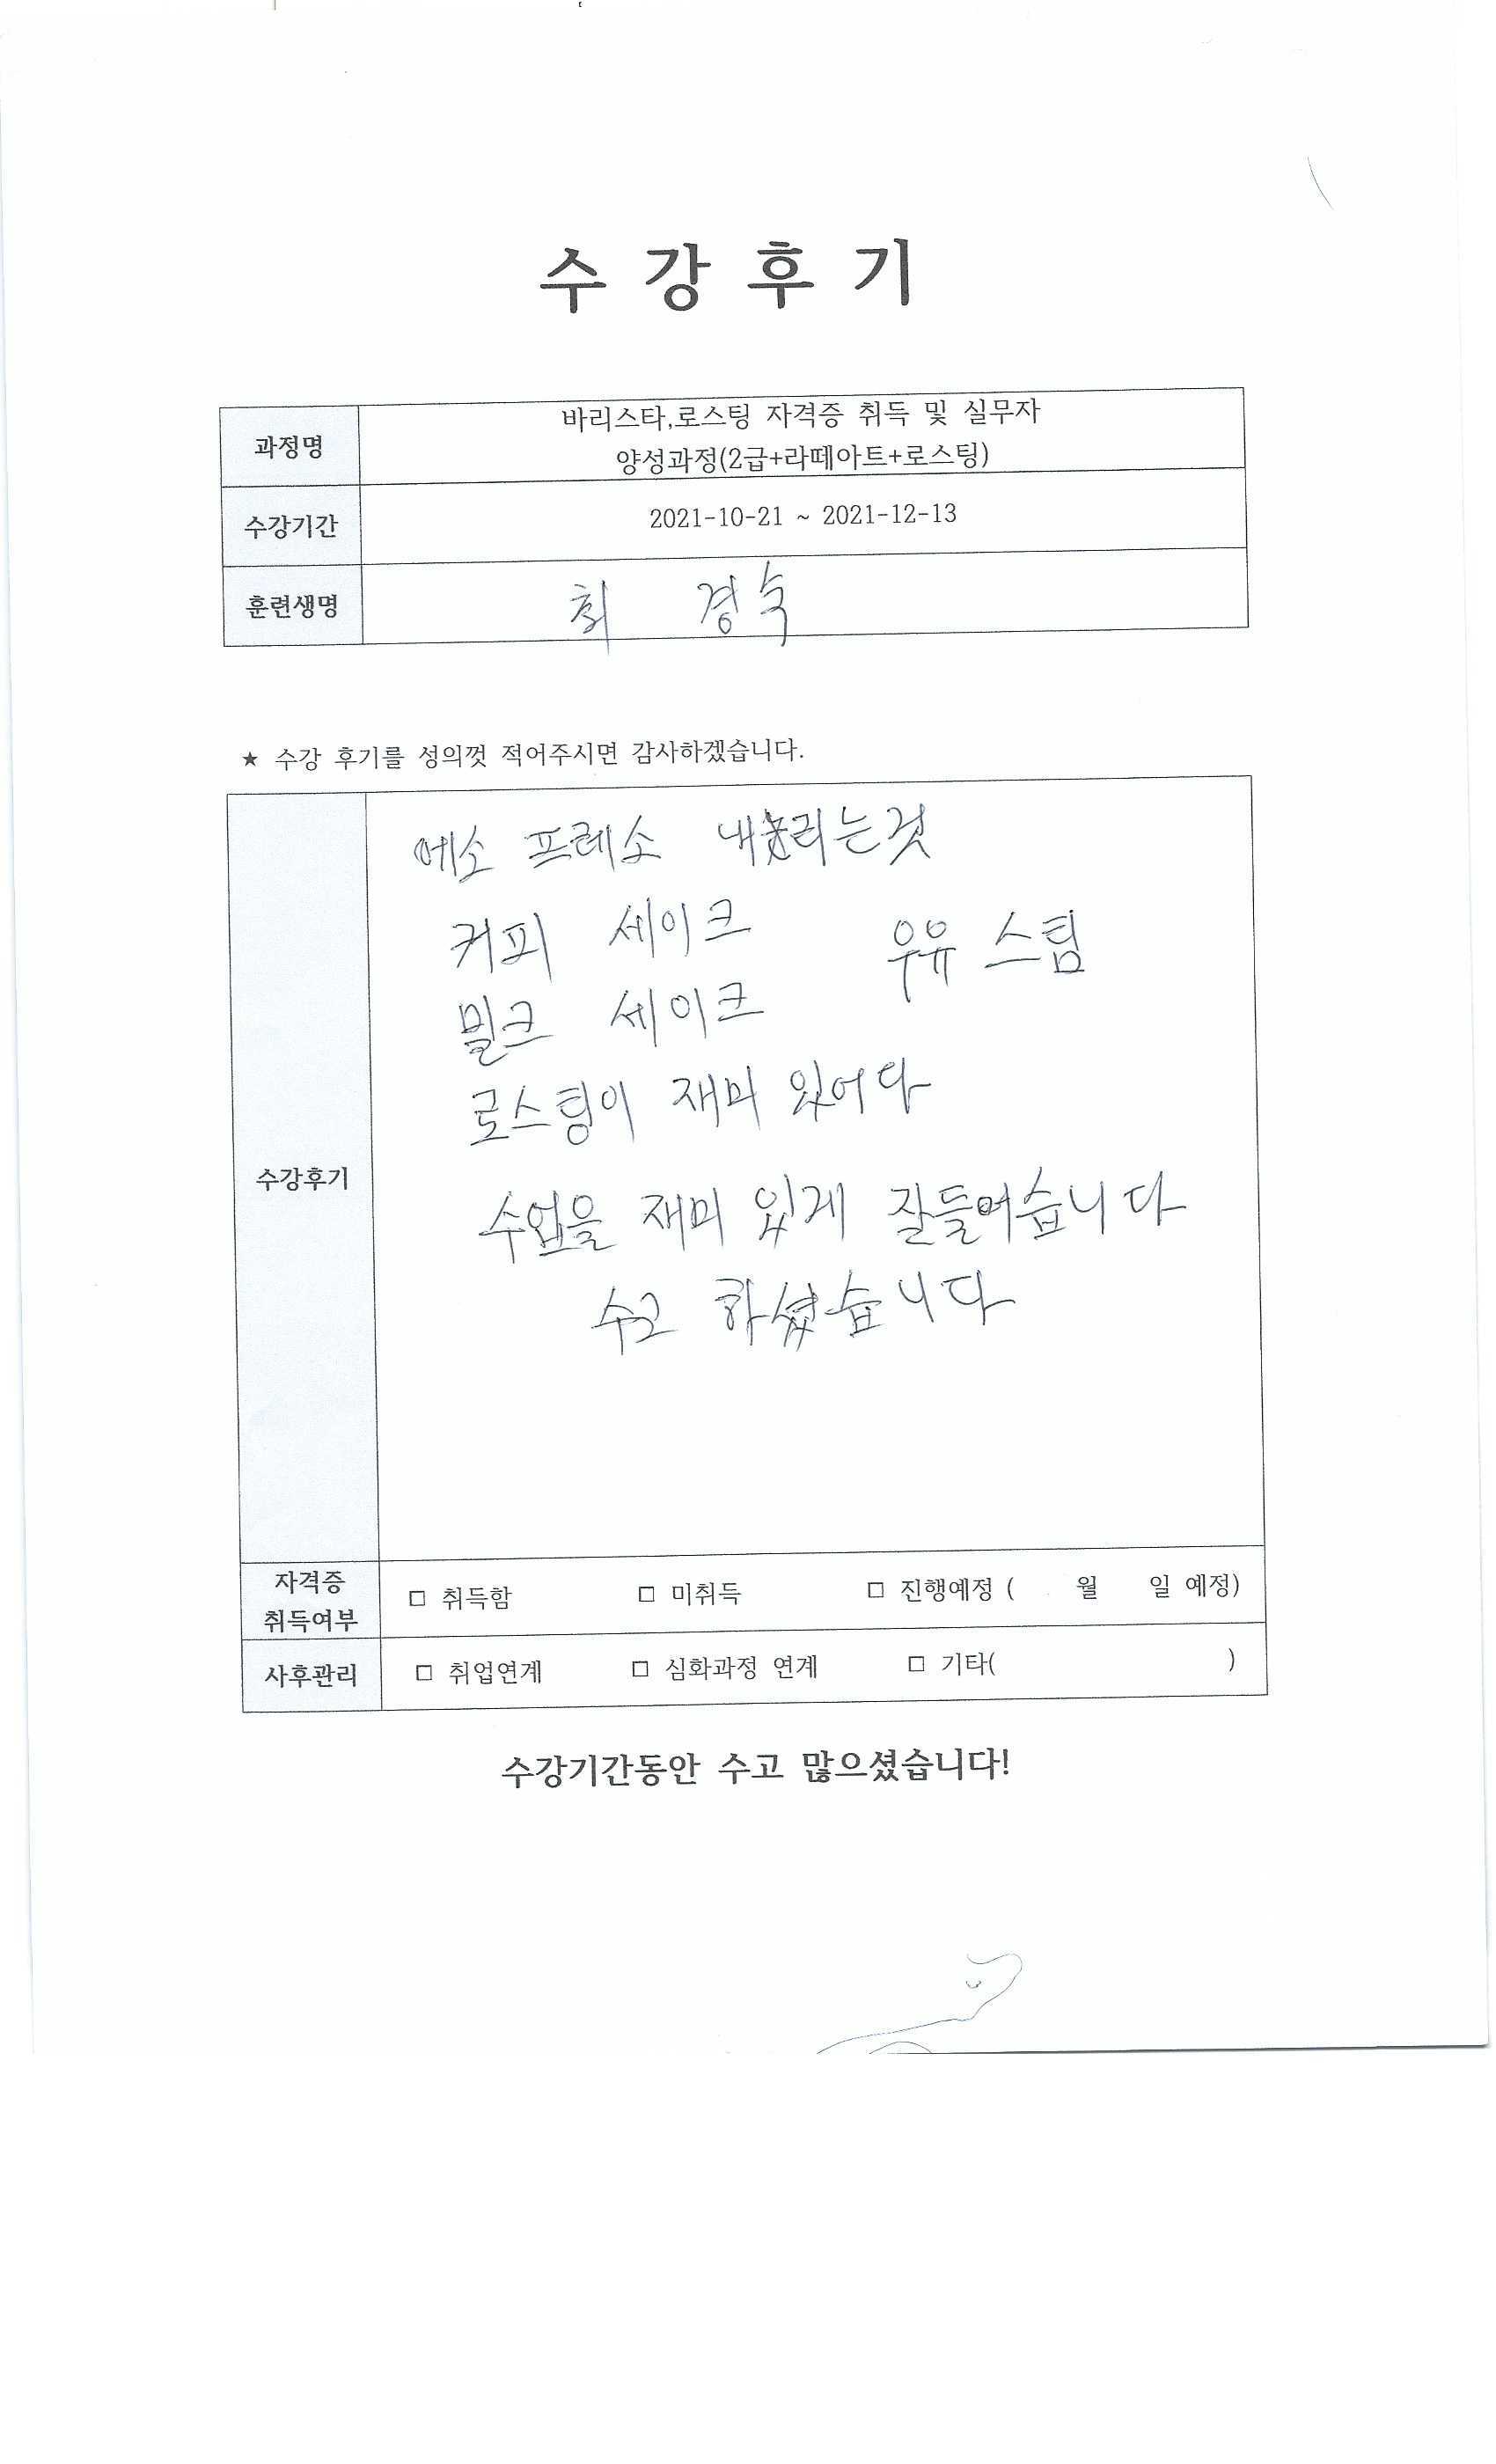 수 강 후 기
과정명
바리스타,로스팅 자격증 취득 및 실무자
양성과정(2급+라떼아트+로스팅)
수강기간
2021-10-21 ~ 2021-12-13
훈련생명
최 경숙
★ 수강 후기를 성의껏 적어주시면 감사하겠습니다.
수강후기
에소 프레소 내리는것
커피 세이크 우유 스팀
밀크 세이크
로스팅이 재미 있어다
수업을 재미 있게 잘들어습니다
수고 하셨습니다
자격증
취득여부
□ 취득함 □ 미취득 □ 진행예정 ( 월 일 예정)
사후관리
□ 취업연계 □ 심화과정 연계 □ 기타( )
수강기간동안 수고 많으셨습니다!